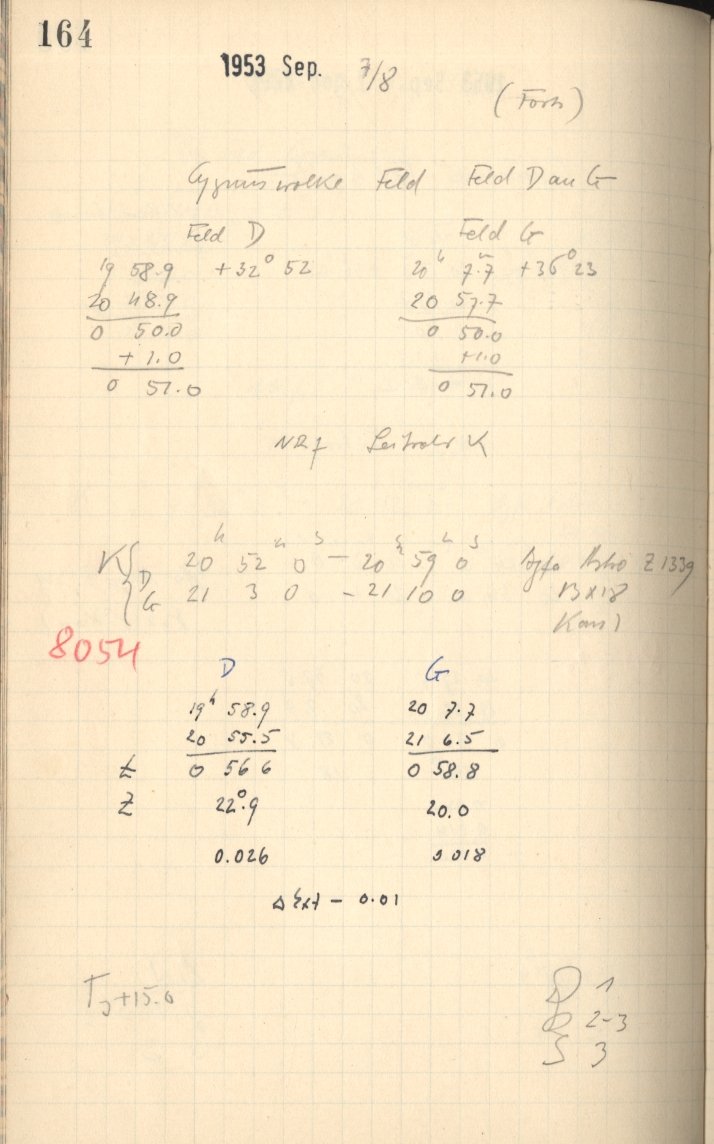 164
1953 Sep. 7/8
(Forts)
Cygnuswolke Feld Feld D an G
Feld D Feld G
19 58.9 +32° 52 20ʰ 7.7ᵐ +36° 23
20 48.9 20 57.7
0 50.0 0 50.0
+ 1.0 +1.0
0 51.0 0 51.0
NR 7 K
K { D 20ʰ 52ᵐ 0ˢ - 20ʰ 59ᵐ 0ˢ Agfa Astro Z 1339
G 21 3 0 - 21 10 0 13x18
8054
D G
19ʰ 58.9 20 7.7
20 55.5 21 6.5
t 0 56 6 0 58.8
Z 22°.9 20.0
0.026 0 018
Δ Ext - 0.01
T + 15.0
D 1
R 2-3
S 3